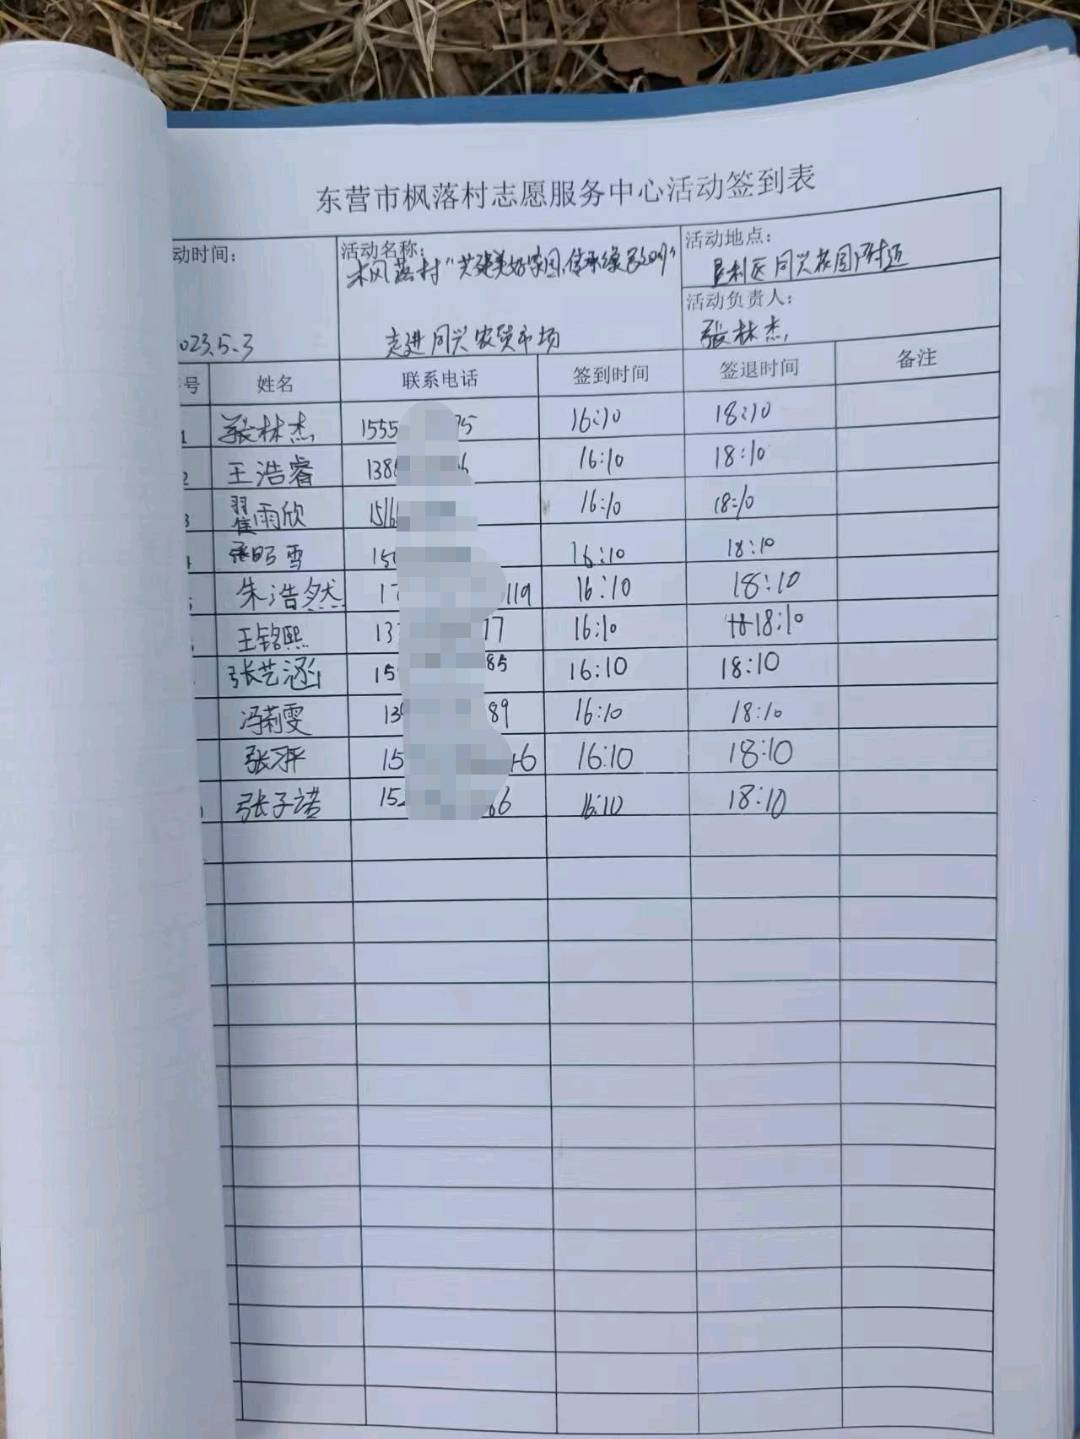 东营市枫落村志愿服务中心活动签到表
动时间：
2023.5.3
活动名称：
枫落村“共建美好家园，
走进同兴农贸市场
活动地点：
垦利区同兴花园附近
活动负责人：
张林杰
号 姓名 联系电话 签到时间 签退时间 备注
1 张林杰 1555 75 16:10 18:10
2 王浩睿 138 16:10 18:10
3 翟雨欣 151 16:10 18:10
张昭雪 150 16:10 18:10
朱浩然 17 119 16:10 18:10
王铭熙 137 77 16:10 18:10
张艺涵 15 85 16:10 18:10
冯莉雯 13 89 16:10 18:10
张 15 46 16:10 18:10
张子诺 152 66 16:10 18:10